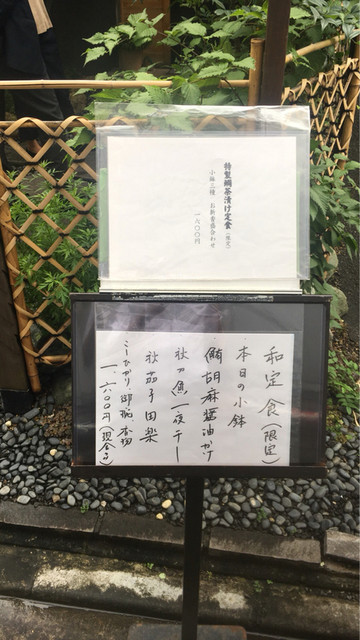 特製鯛茶漬け定食（限定）
小鉢三種　お新香盛合わせ
一八〇〇円
和定食（限定）
本日の小鉢
鮪胡麻醤油かけ
秋刀魚一夜干し
秋茄子田楽
こしひかり、御椀、香物
一、六〇〇円（現金のみ）